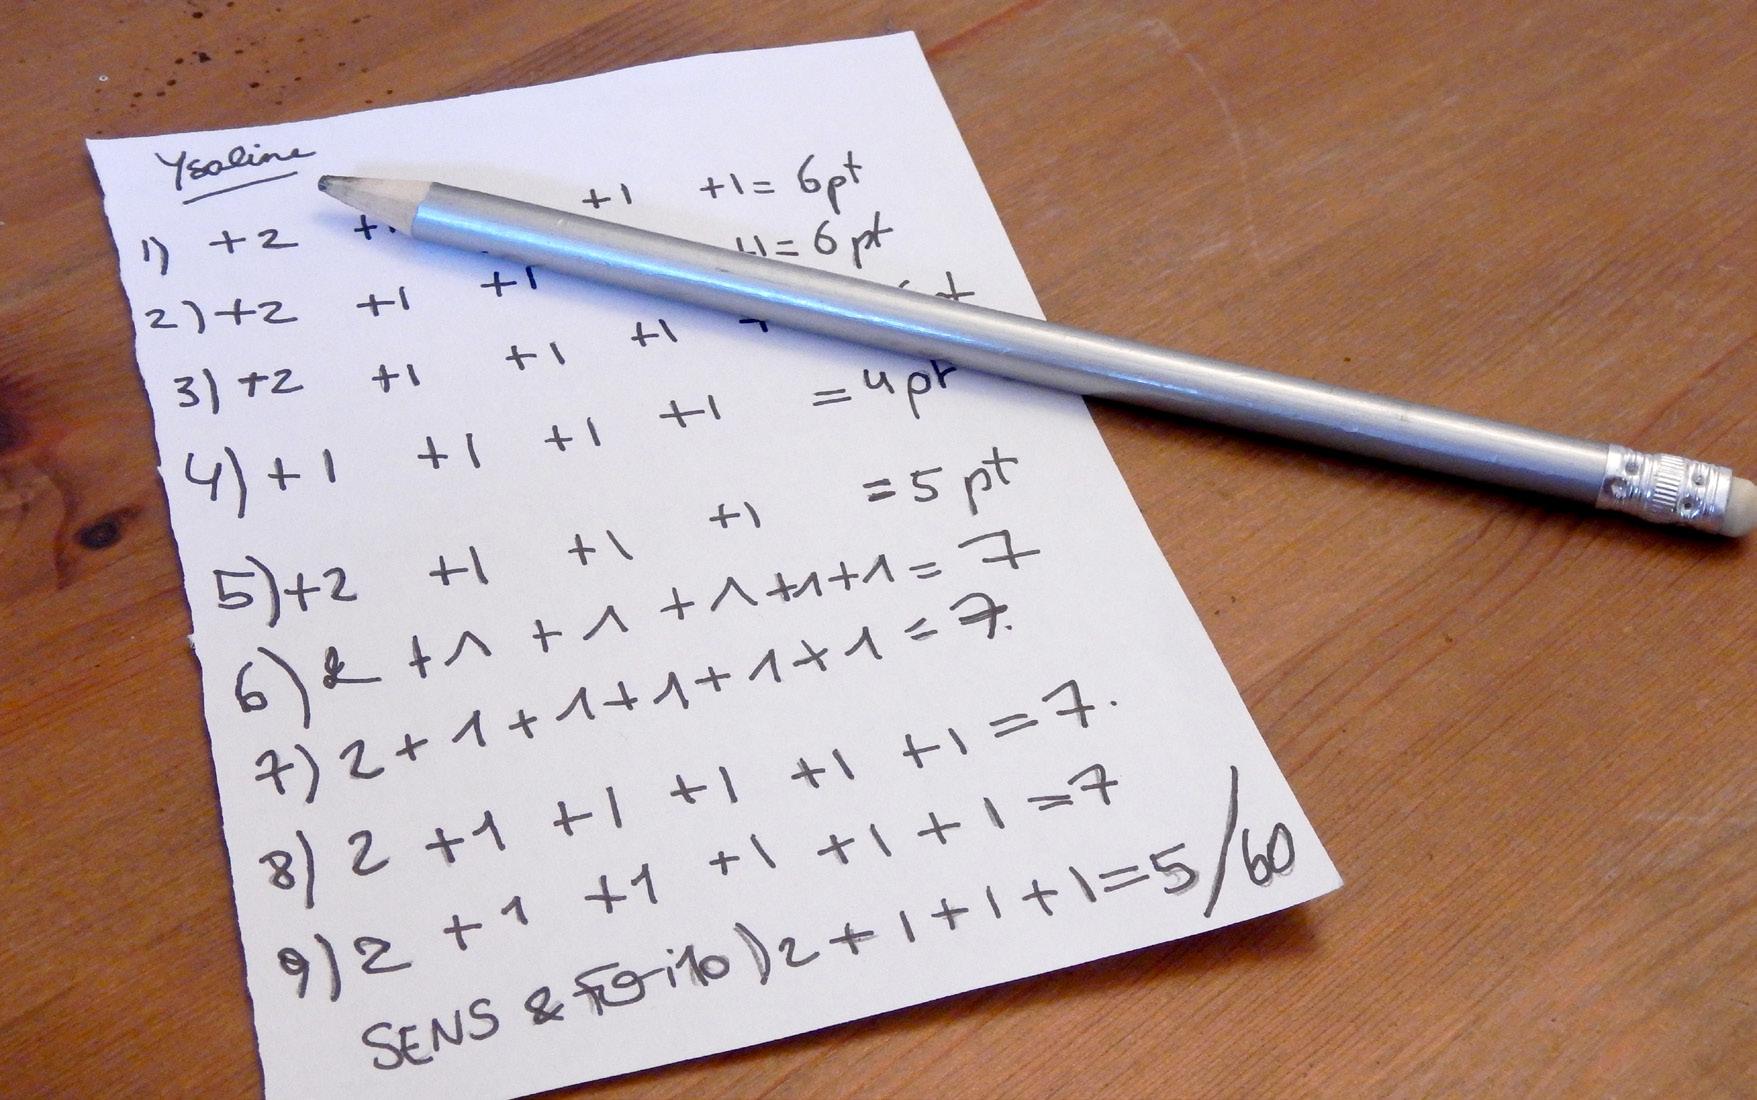 Ysaline
1) +2 +1 +1 +1= 6pt
2) +2 +1 +1 +1= 6 pt
3) +2 +1 +1 +1
4) +1 +1 +1 +1 = 4pt
5) +2 +1 +1 +1 = 5 pt
6) 2 +1 +1 +1+1+1= 7
7) 2+1+1+1+1+1=7.
8) 2 +1 +1 +1 +1 +1 =7.
9) 2 +1 +1 +1 +1 +1 =7
10) 2+1+1+1=5/60
SENS &